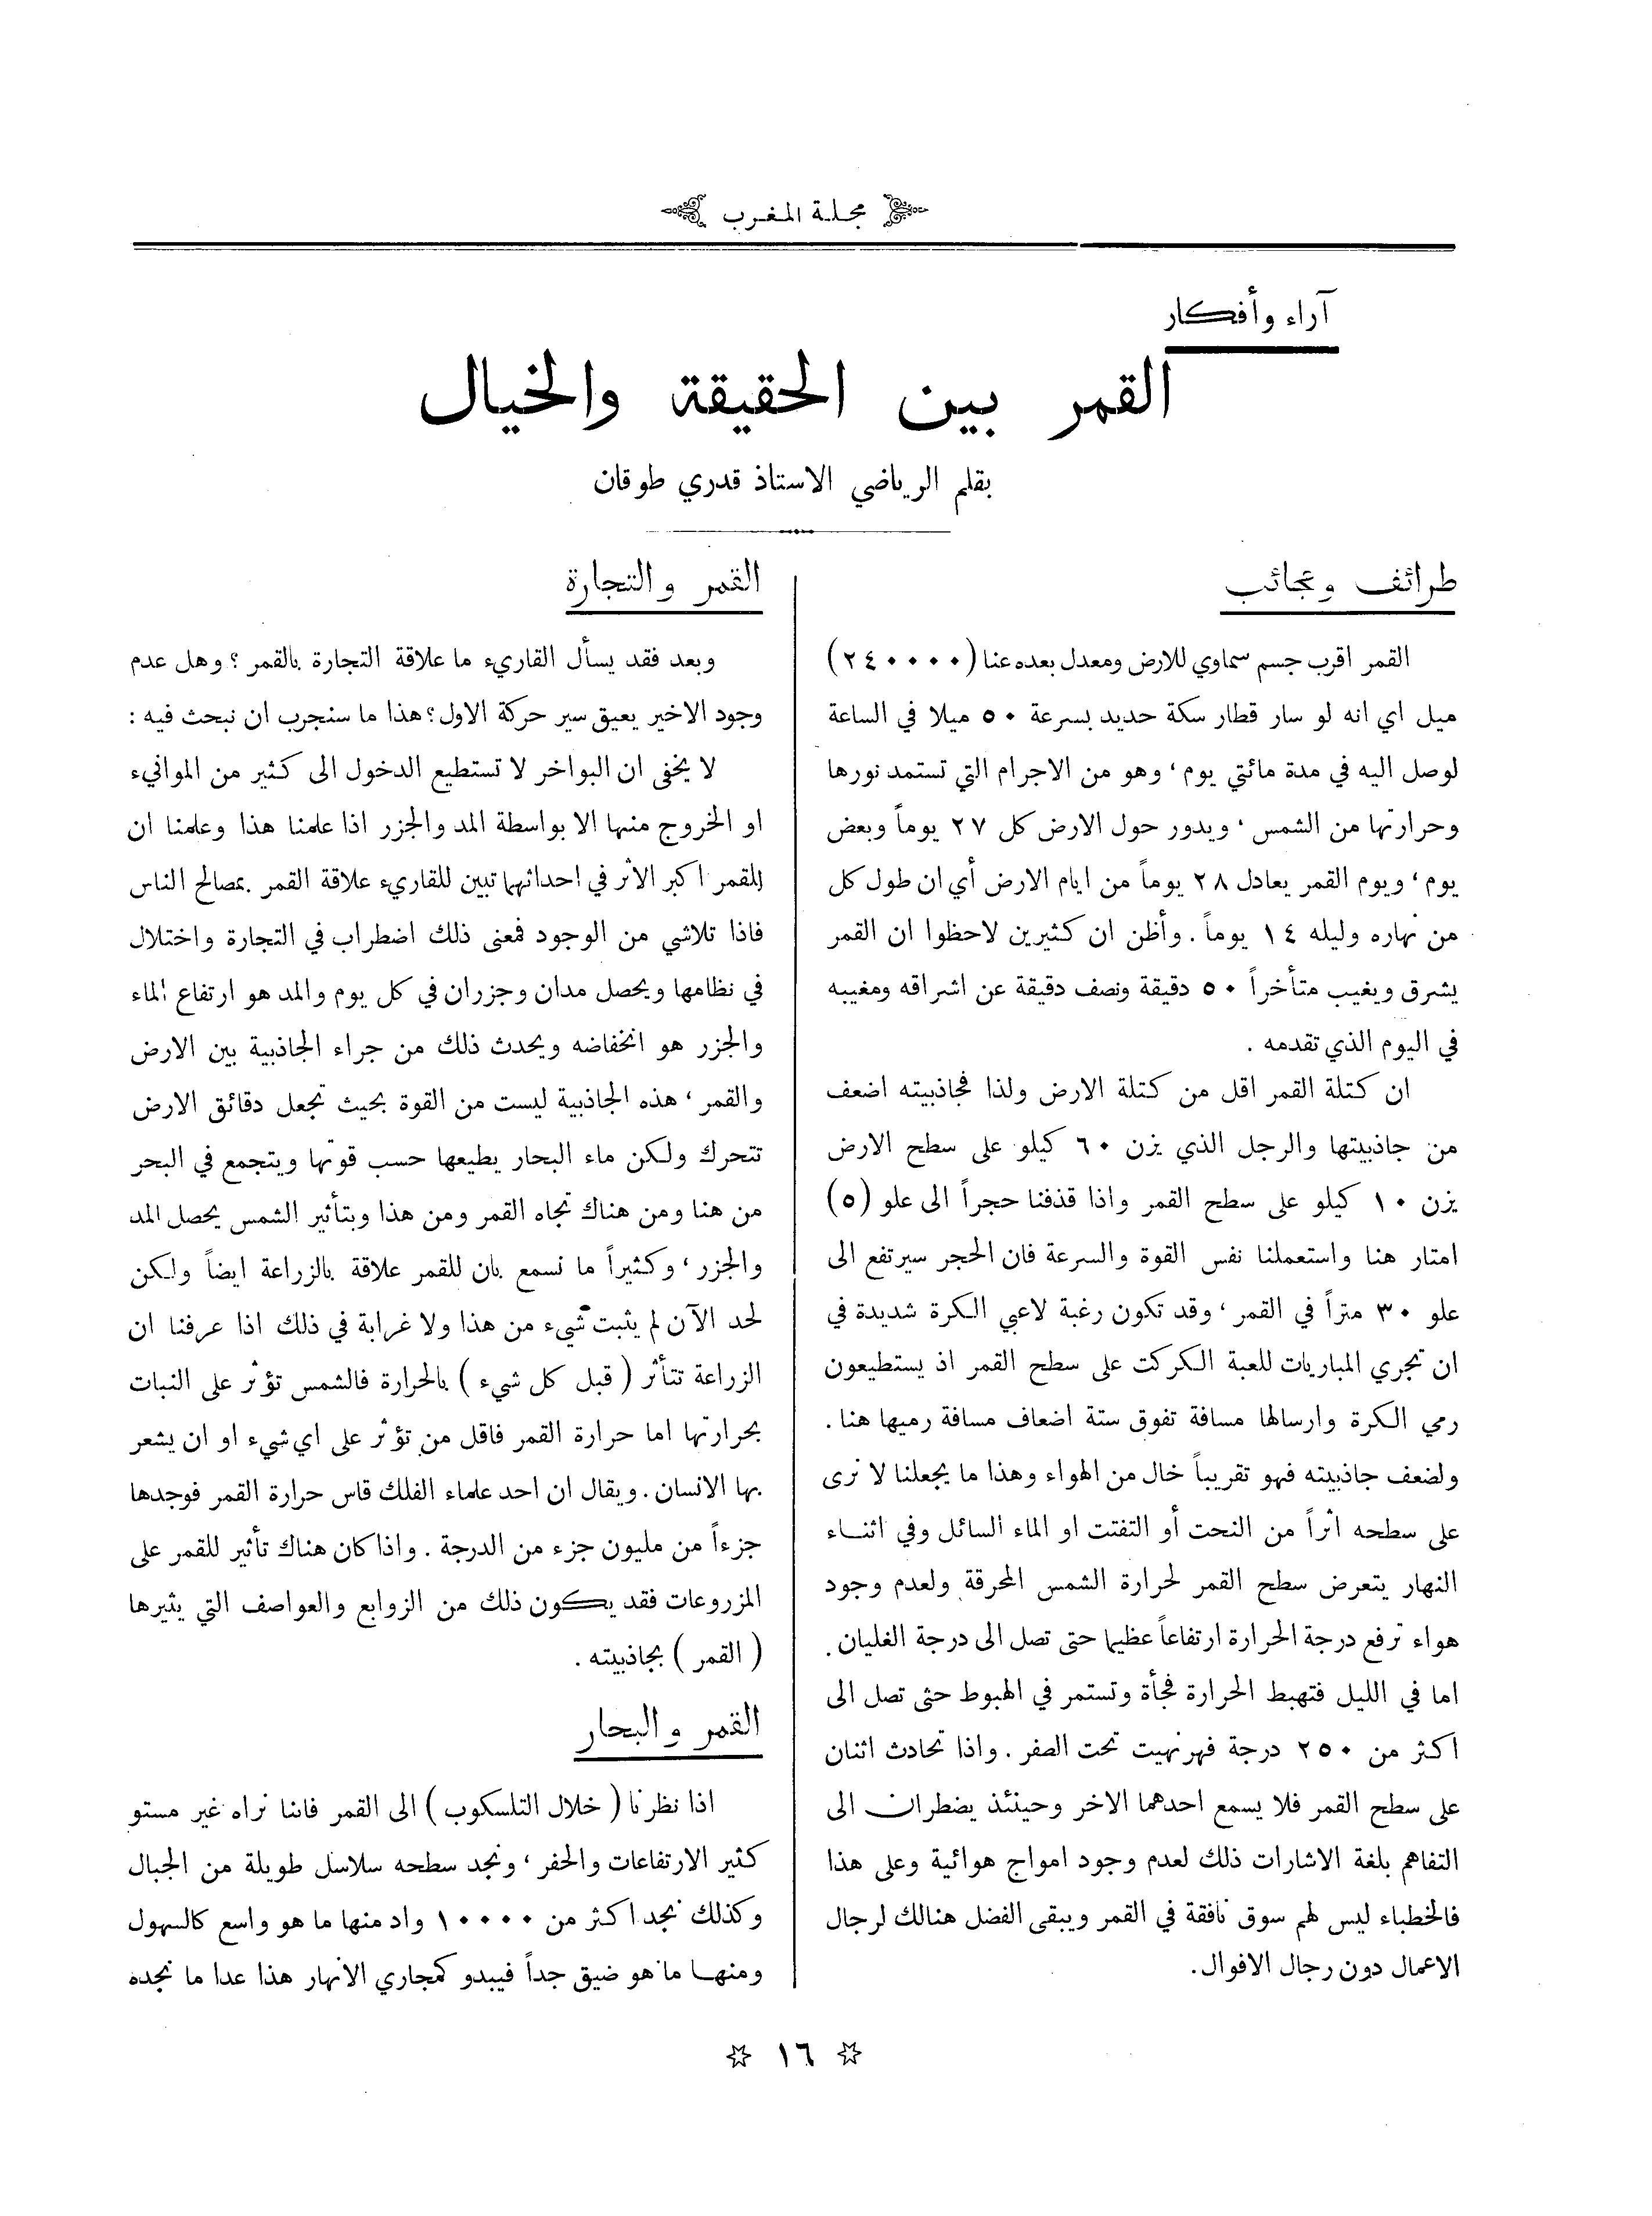 مجلة المغرب
آراء وأفكار
القمر بين الحقيقة والخيال
بقلم الرياضي الاستاذ قدري طوقان
طرائف وعجائب
القمر اقرب جسم سماوي للارض ومعدل بعده عنا (٢٤٠٠٠٠)
ميل اي انه لو سار قطار سكة حديد بسرعة ٥٠ ميلا في الساعة
لوصل اليه في مدة مائتي يوم، وهو من الاجرام التي تستمد نورها
وحرارتها من الشمس، ويدور حول الارض كل ٢٧ يوماً وبعض
يوم، ويوم القمر يعادل ٢٨ يوماً من ايام الارض أي ان طول كل
من نهاره وليله ١٤ يوماً. وأظن ان كثيرين لاحظوا ان القمر
يشرق ويغيب متأخراً ٥٠ دقيقة ونصف دقيقة عن اشراقه ومغيبه
في اليوم الذي تقدمه .
ان كتلة القمر اقل من كتلة الارض ولذا فجاذبيته اضعف
من جاذبيتها والرجل الذي يزن ٦٠ كيلو على سطح الارض
يزن ١٠ كيلو على سطح القمر واذا قذفنا حجراً الى علو (٥)
امتار هنا واستعملنا نفس القوة والسرعة فان الحجر سيرتفع الى
علو ٣٠ متراً في القمر، وقد تكون رغبة لاعبي الكرة شديدة في
ان تجري المباريات للعبة الكركت على سطح القمر اذ يستطيعون
رمي الكرة وارسالها مسافة تفوق ستة اضعاف مسافة رميها هنا.
ولضعف جاذبيته فهو تقريباً خال من الهواء وهذا ما يجعلنا لا نرى
على سطحه اثراً من النحت أو التفتت او الماء السائل وفي اثناء
النهار يتعرض سطح القمر لحرارة الشمس المحرقة ولعدم وجود
هواء ترفع درجة الحرارة ارتفاعاً عظيما حتى تصل الى درجة الغليان.
اما في الليل فتهبط الحرارة فجأة وتستمر في الهبوط حتى تصل الى
اكثر من ٢٥٠ درجة فهرنهيت تحت الصفر. واذا تحادث اثنان
على سطح القمر فلا يسمع احدهما الاخر وحينئذ يضطران الى
التفاهم بلغة الاشارات ذلك لعدم وجود امواج هوائية وعلى هذا
فالخطباء ليس لهم سوق نافقة في القمر ويبقى الفضل هنالك لرجال
الاعمال دون رجال الاقوال.
القمر والتجارة
وبعد فقد يسأل القاريء ما علاقة التجارة بالقمر؟ وهل عدم
وجود الاخير يعيق سير حركة الاول؟ هذا ما سنجرب ان نبحث فيه :
لا يخفى ان البواخر لا تستطيع الدخول الى كثير من الموانيء
او الخروج منها الا بواسطة المد والجزر اذا علمنا هذا وعلمنا ان
للقمر اكبر الاثر في احداثهما تبين للقاريء علاقة القمر بمصالح الناس
فاذا تلاشي من الوجود فمعنى ذلك اضطراب في التجارة واختلال
في نظامها ويحصل مدان وجزران في كل يوم والمد هو ارتفاع الماء
والجزر هو انخفاضه ويحدث ذلك من جراء الجاذبية بين الارض
والقمر، هذه الجاذبية ليست من القوة بحيث تجعل دقائق الارض
تتحرك ولكن ماء البحار يطيعها حسب قوتها ويتجمع في البحر
من هنا ومن هناك تجاه القمر ومن هذا وبتأثير الشمس يحصل المد
والجزر، وكثيراً ما نسمع بان للقمر علاقة بالزراعة ايضاً ولكن
لحد الآن لم يثبت شيء من هذا ولا غرابة في ذلك اذا عرفنا ان
الزراعة تتأثر (قبل كل شيء) بالحرارة فالشمس تؤثر على النبات
بحرارتها اما حرارة القمر فاقل من تؤثر على اي شيء او ان يشعر
بها الانسان. ويقال ان احد علماء الفلك قاس حرارة القمر فوجدها
جزءاً من مليون جزء من الدرجة. واذا كان هناك تأثير للقمر على
المزروعات فقد يكون ذلك من الزوابع والعواصف التي يثيرها
(القمر) بجاذبيته .
القمر والبحار
اذا نظرنا (خلال التلسكوب) الى القمر فاننا نراه غير مستو
كثير الارتفاعات والحفر، ونجد سطحه سلاسل طويلة من الجبال
وكذلك نجد اكثر من ١٠٠٠٠ واد منها ما هو واسع كالسهول
ومنها ما هو ضيق جداً فيبدو كمجاري الانهار هذا عدا ما نجده
١٦